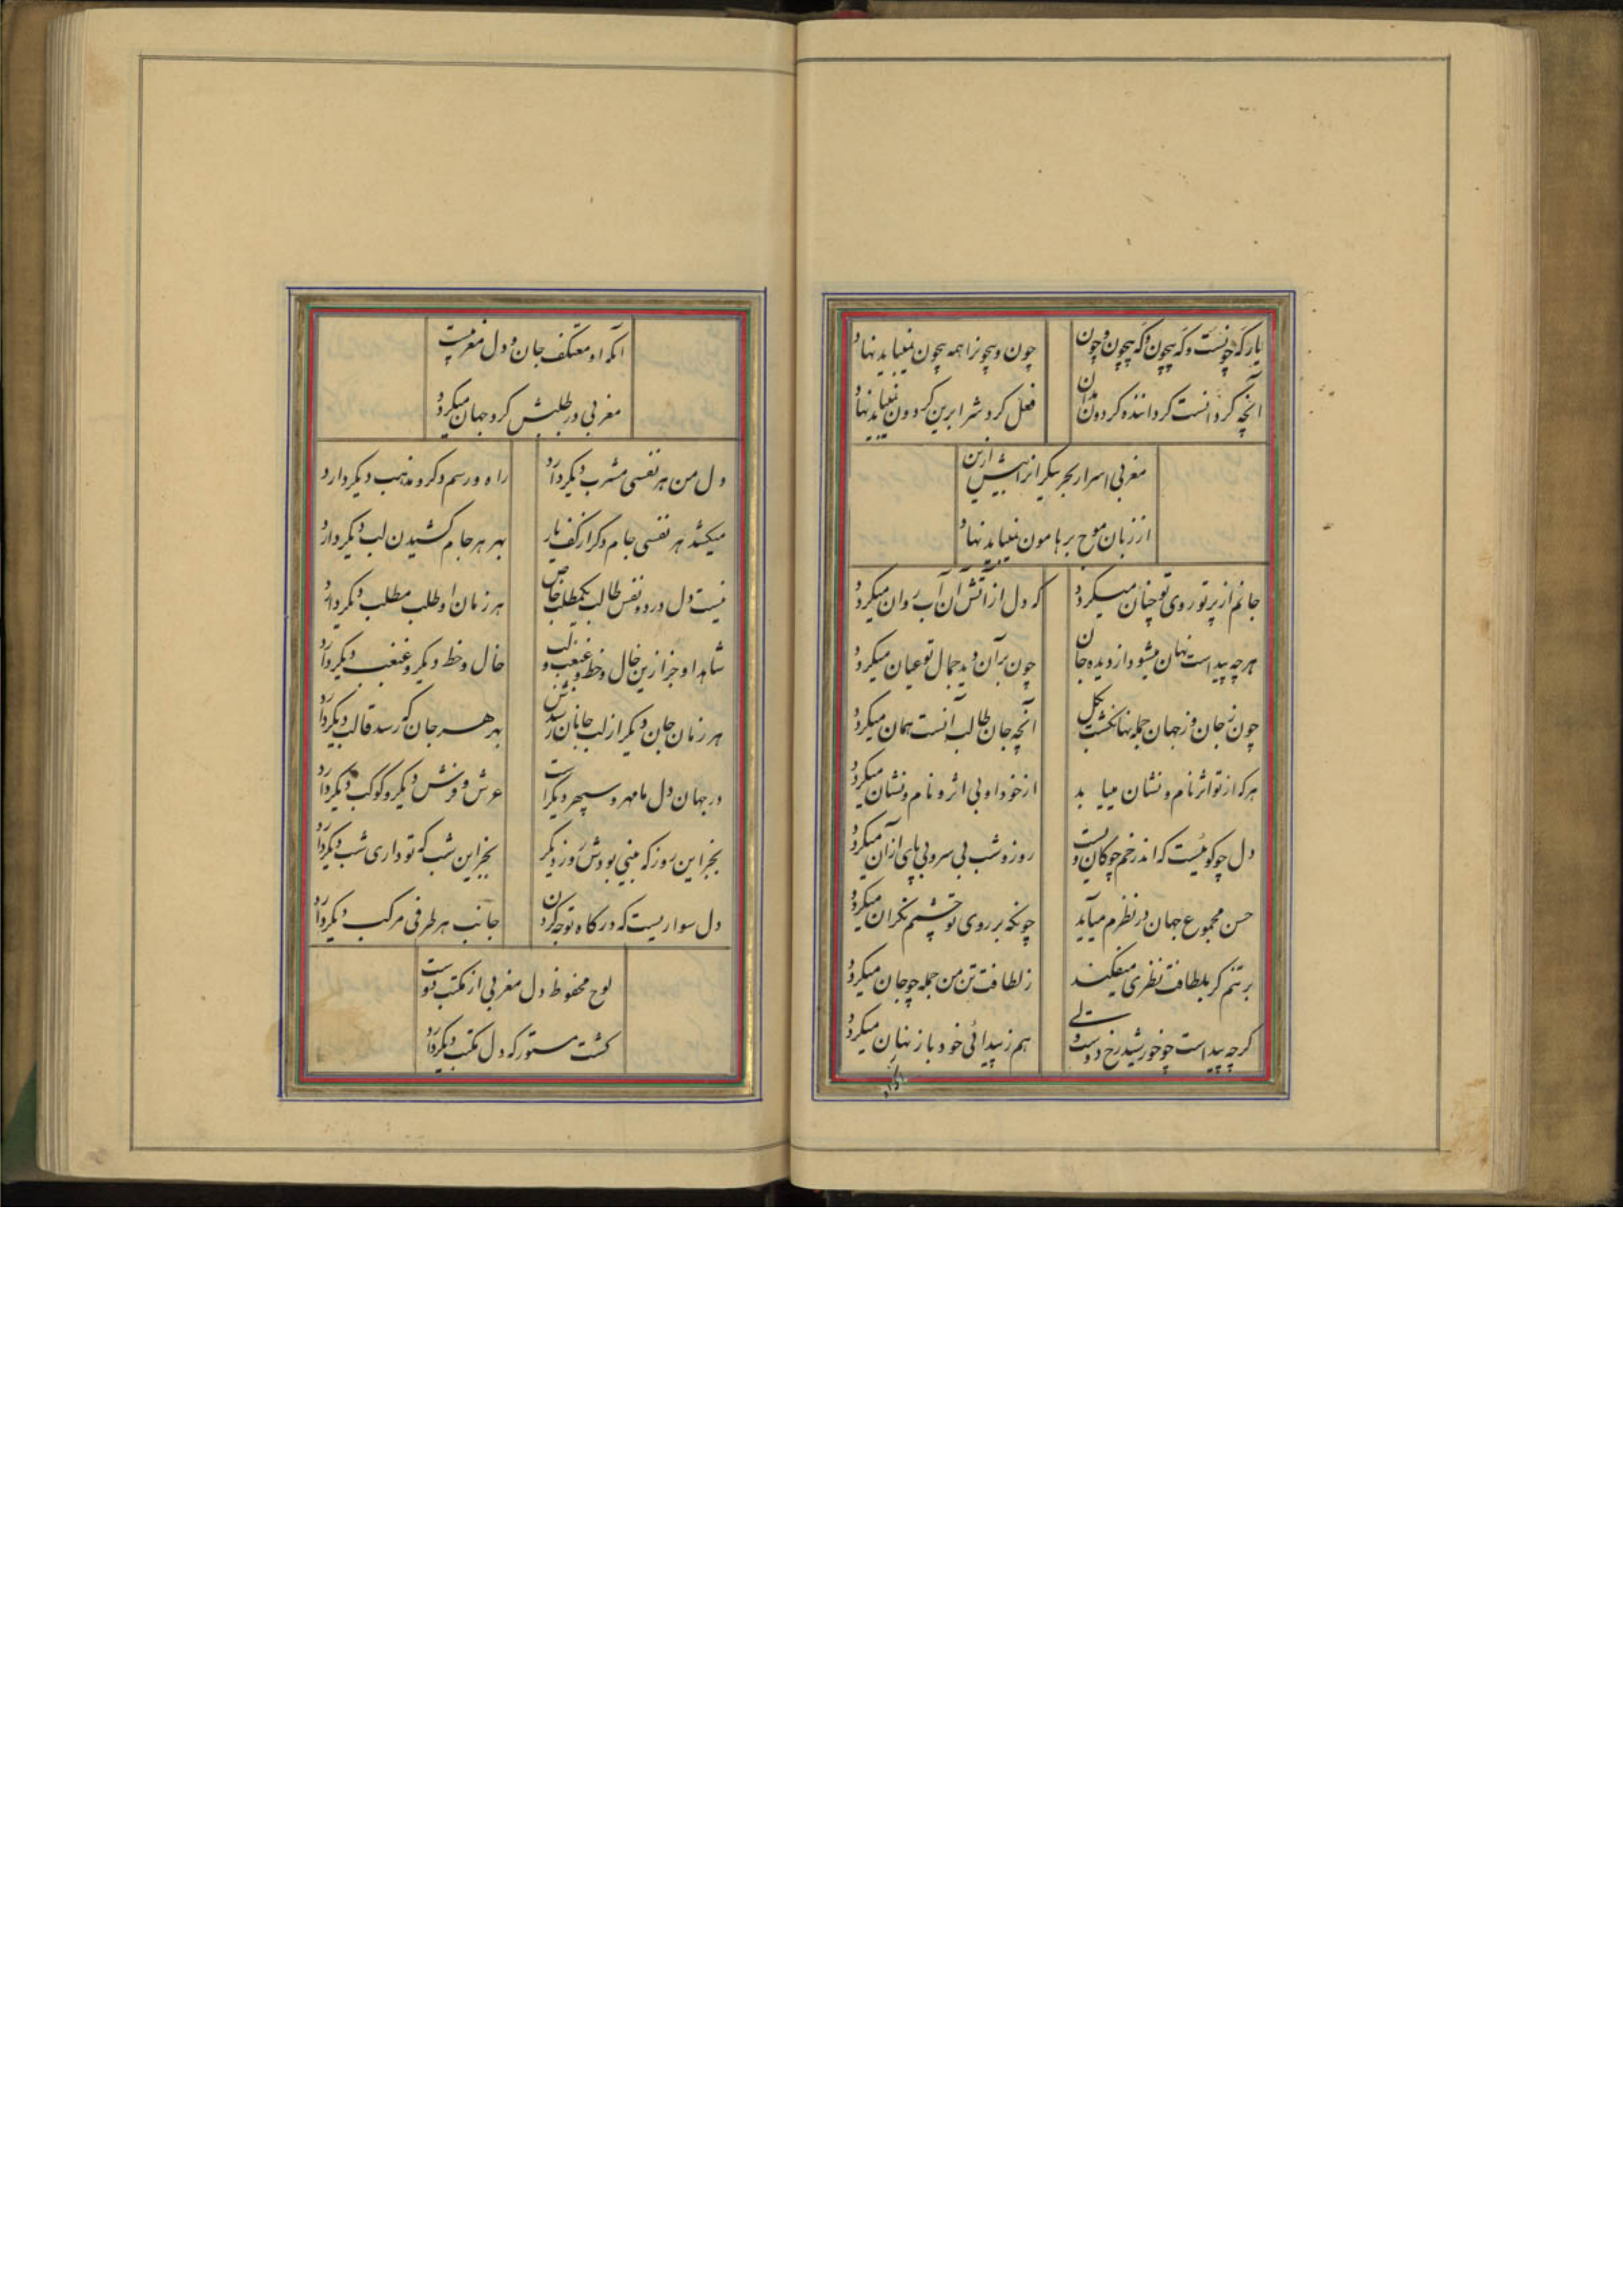 یار که چونست و که بیچون و که بیچون و چون
چون و بیچونرا همه بیچون نمیباید نهاد
آنچه گردانست گرداننده گردون بدان
فعل گردش را برین گردون نمیباید نهاد
مغربی اسرار بحر بیکرانرا بیش ازین
از زبان موج بر هامون نمیباید نهاد
جانم از پرتو روی تو چنان میگردد
که دل از آتش آن آب روان میگردد
هرچه پیداست نهان میشود از دیده جان
چون بر آن دید جمال تو عیان میگردد
چون ز جان وز جهان جمله نهان گشت بکل
آنچه جان طالب آنست همان میگردد
هرکه از تو اثر نام و نشان مییابد
از خود او بی اثر و نام و نشان میگردد
دل چو گوئیست که اندر خم چوگان ویست
روز و شب بی سر و بی پای از آن میگردد
حسن مجموع جهان در نظرم میآید
چونکه بر روی تو چشمم نگران میگردد
بر تنم گر بلطافت نظری میفکند
ز لطافت تن من جمله چو جان میگردد
گرچه پیداست چو خورشید رخ دوست ولی
هم ز پیدائی خود باز نهان میگردد
آنکه او معتکف جان و دل مغربیست
مغربی در طلبش گرد جهان میگردد
دل من هر نفسی مشرب دیگر دارد
راه و رسم دگر و مذهب دیگر دارد
میکشد هر نفسی جام دگر از کف یار
بهر هر جام کشیدن لب دیگر دارد
نیست دل در دو نفس طالب یکمطلب خاص
هر زمان او طلب مطلب دیگر دارد
شاهد او جز ازین خال و خط و غبغب و لب
خال و خط دیگر و غبغب دیگر دارد
هر زمان جان دگر از لب جانان رسدش
بهر هر جان که رسد قالب دیگر دارد
در جهان دل ما مهر و سپهر دگر است
عرش و فرش دیگر و کوکب دیگر دارد
بجز این روز که بینی بودش روز دیگر
بجز این شب که تو داری شب دیگر دارد
دل سواریست که در گاه توجه کردن
جانب هر طرفی مرکب دیگر دارد
لوح محفوظ دل مغربی از مکتب اوست
گشت مستور که دل مکتب دیگر دارد